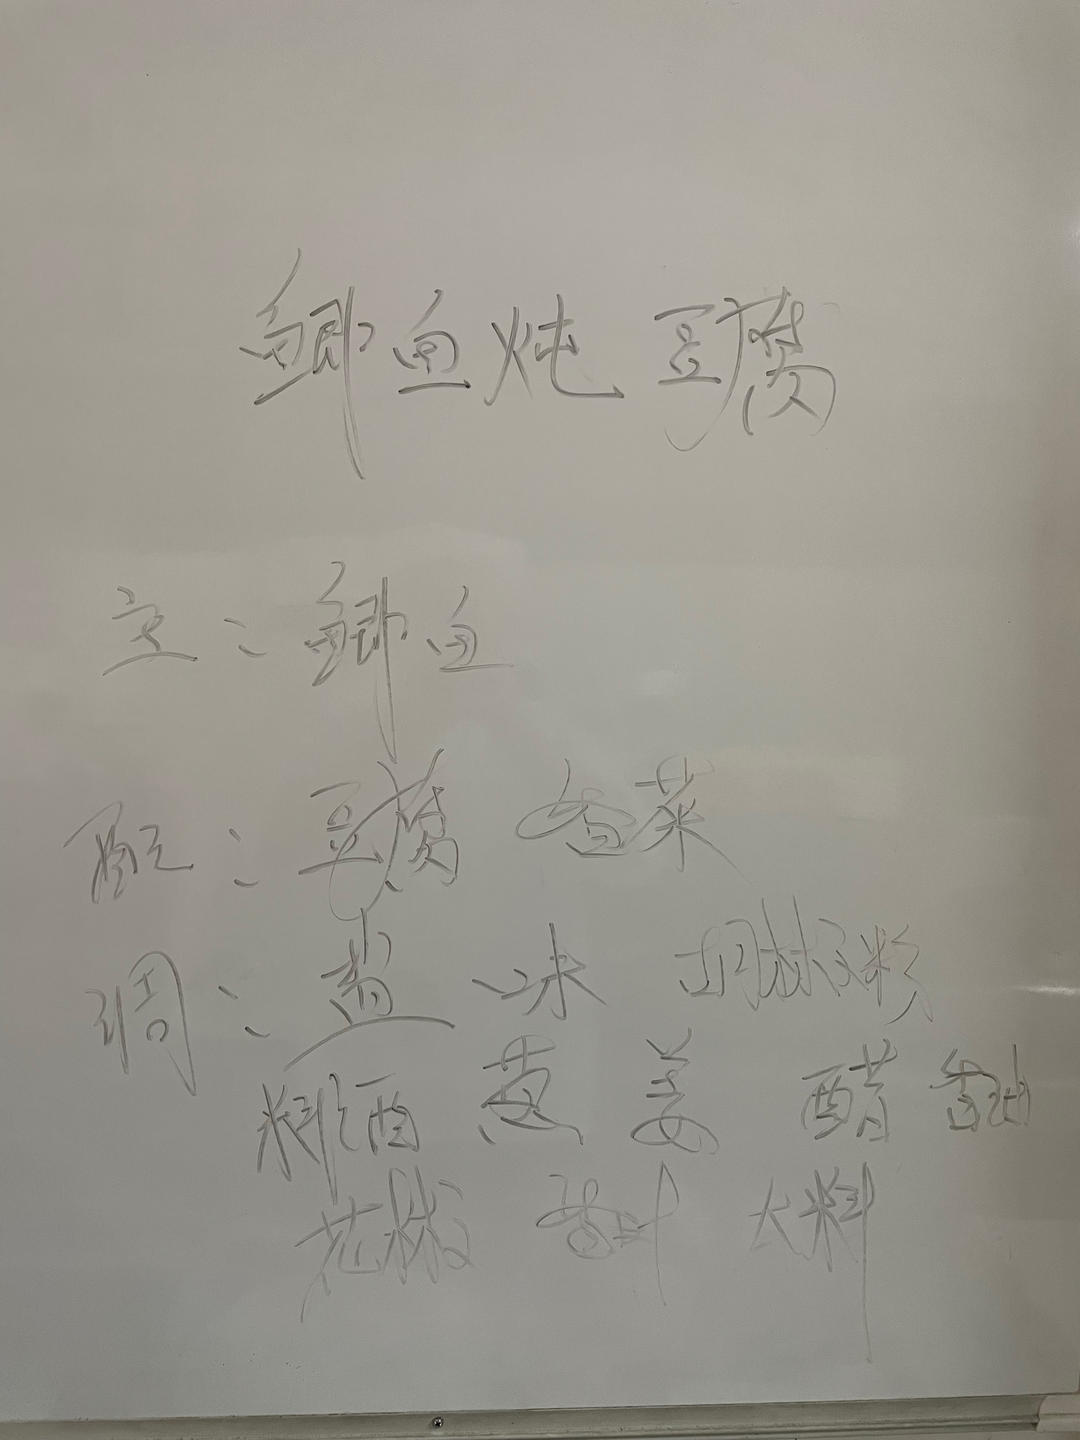 鲫鱼炖豆腐
主：鲫鱼
配：豆腐 香菜
调：盐 味 胡椒粉
料酒 葱 姜 醋 香油
花椒 香叶 大料